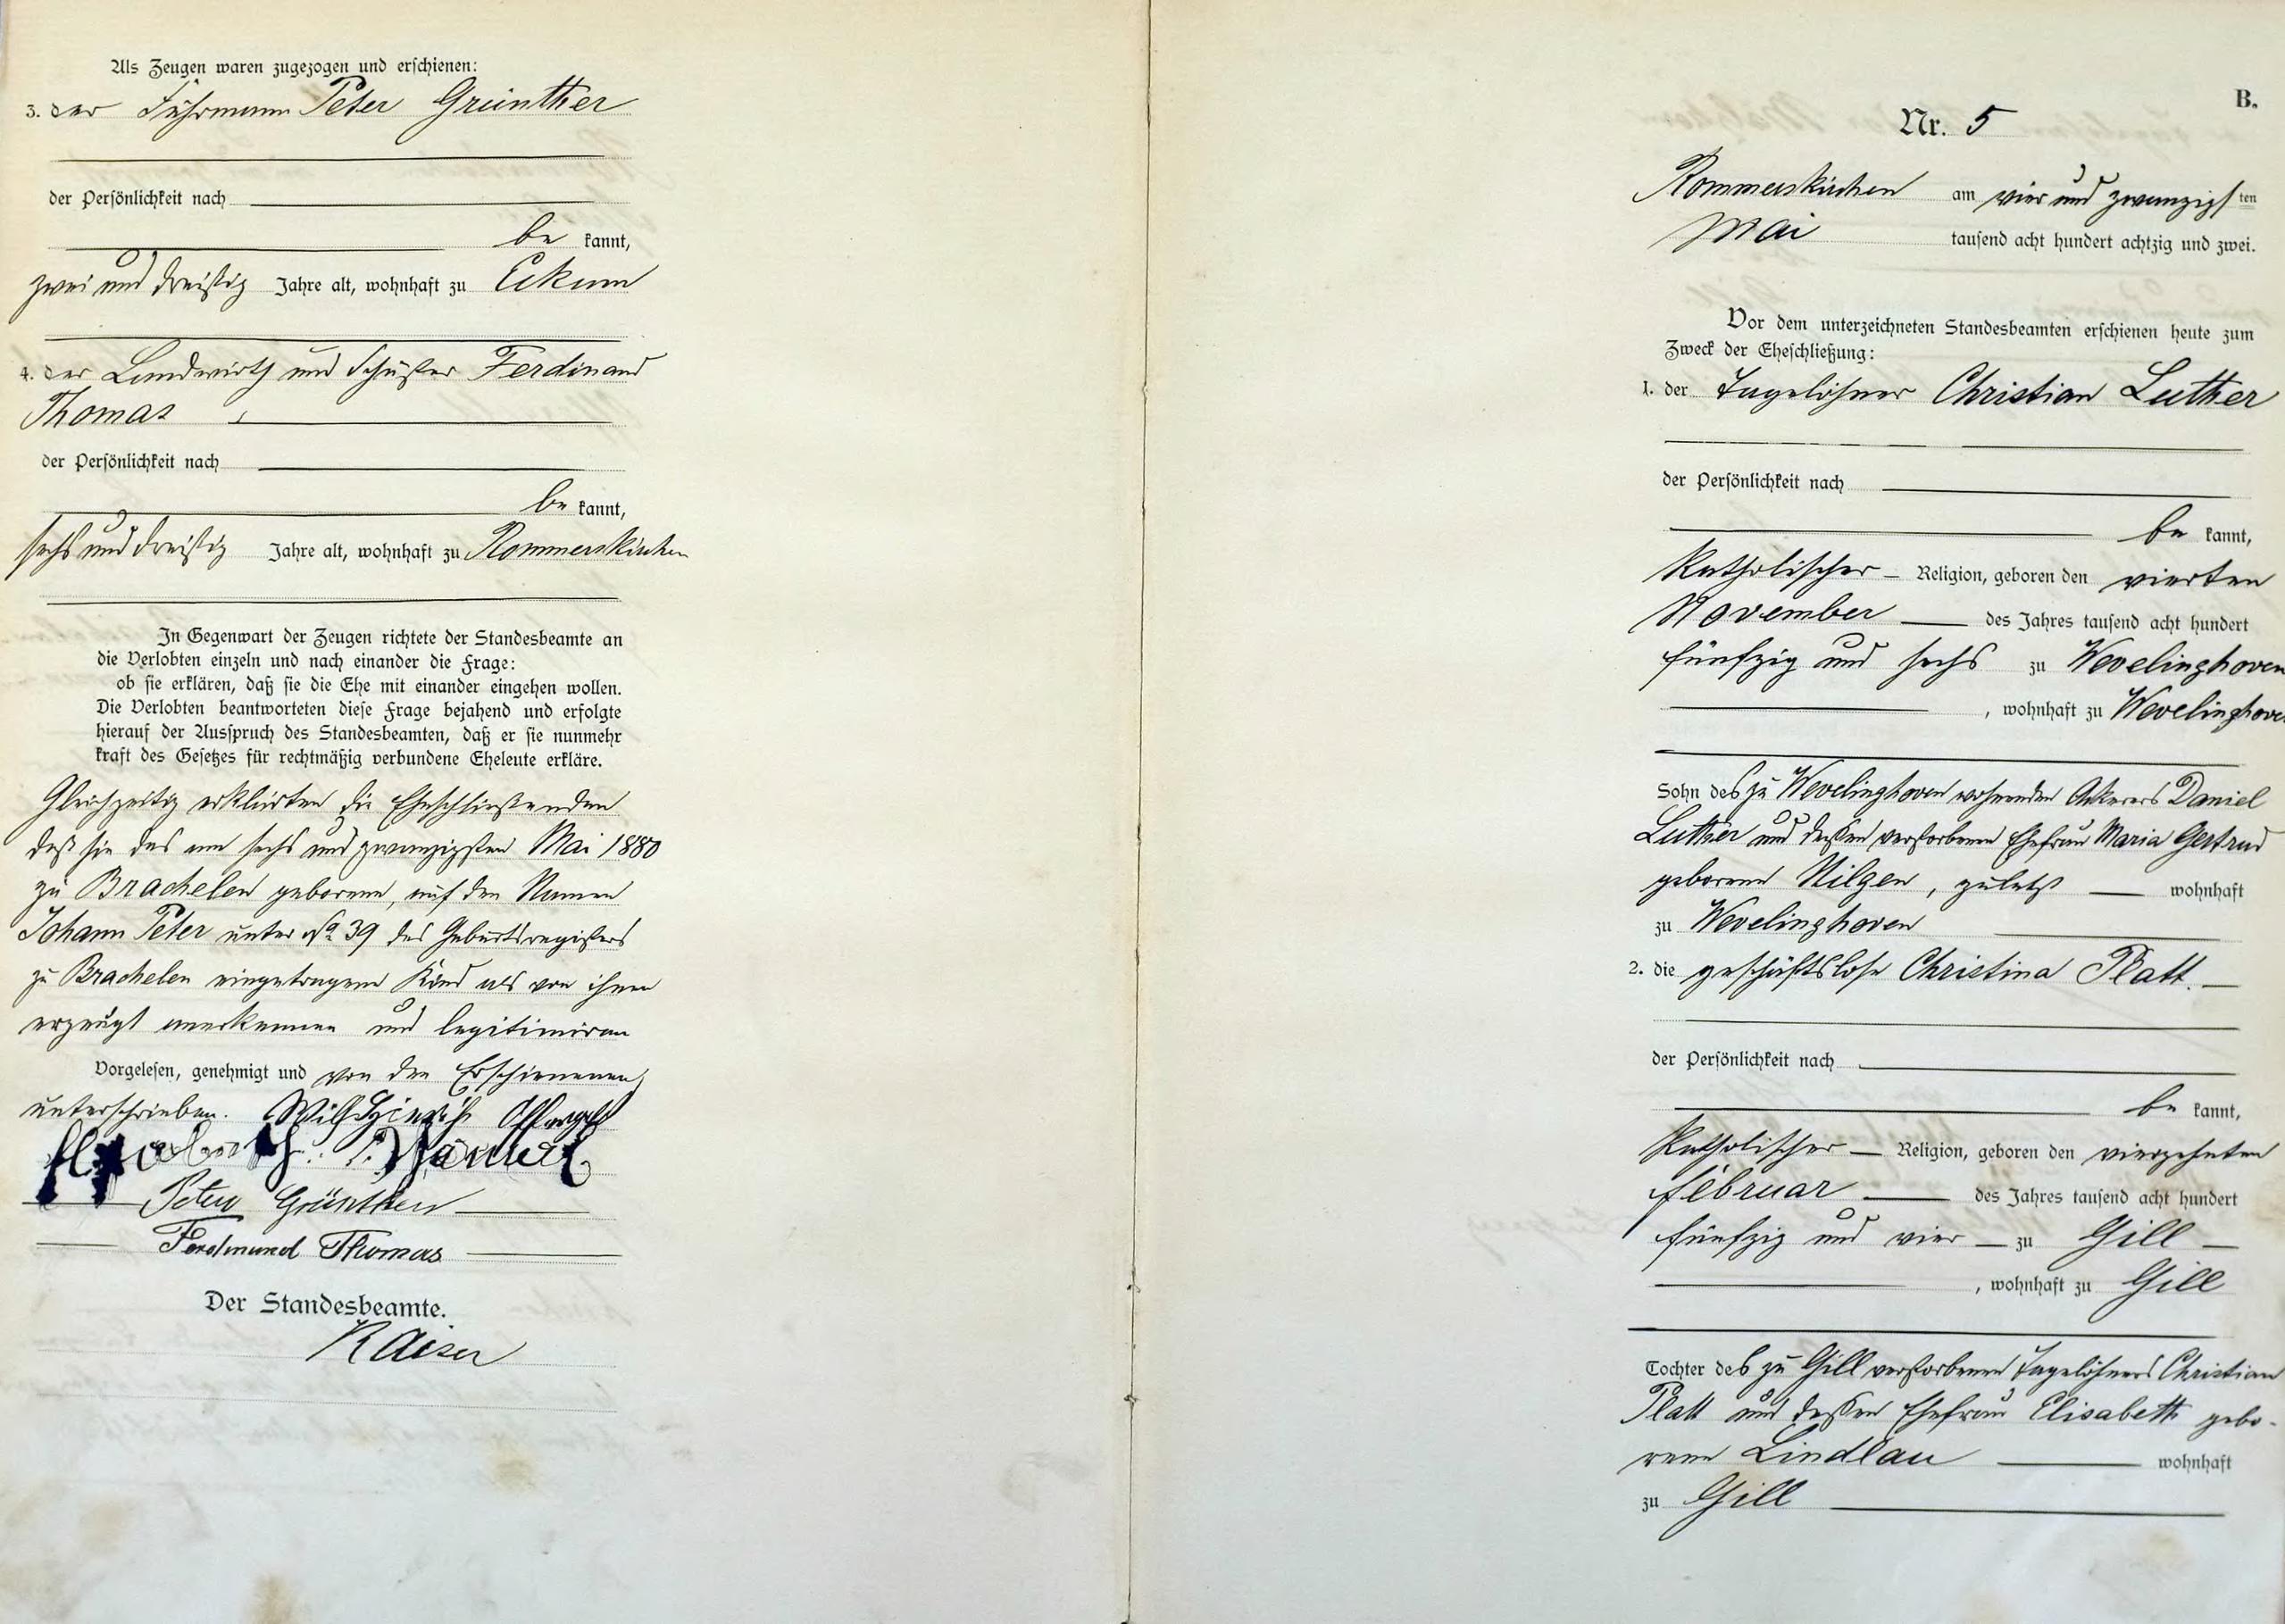 Als Zeugen waren zugezogen und erschienen:
3. der Fuhrmann Peter Greinther
der Persönlichkeit nach
be kannt,
zwei und dreißig Jahre alt, wohnhaft zu Eckum
4. der Landwirth und Schuster Ferdinand
Thomas
der Persönlichkeit nach
be kannt,
sechs und dreißig Jahre alt, wohnhaft zu Rommerskirchen
In Gegenwart der Zeugen richtete der Standesbeamte an
die Verlobten einzeln und nach einander die Frage:
ob sie erklären, daß sie die Ehe mit einander eingehen wollen.
Die Verlobten beantworteten diese Frage bejahend und erfolgte
hierauf der Ausspruch des Standesbeamten, daß er sie nunmehr
kraft des Gesetzes für rechtmäßig verbundene Eheleute erkläre.
Gleichzeitig erklärten die Eheschließenden
daß sie das am sechs und zwanzigsten Mai 1880
zu Brachelen geborene, auf den Namen
Johann Peter unter No 39 des Geburtsregisters
zu Brachelen eingetragene Kind als von ihnen
erzeugt anerkennen und legitimiren
Vorgelesen, genehmigt und von den Erschienenen
unterschrieben.
Peter Günther
Ferdinand Thomas
Der Standesbeamte.
Kaiser
B.
Nr. 5
Rommerskirchen am vier und zwanzigsten
Mai tausend acht hundert achtzig und zwei.
Vor dem unterzeichneten Standesbeamten erschienen heute zum
Zweck der Eheschließung:
1. der Tagelöhner Christian Luther
der Persönlichkeit nach
be kannt,
Katholischer Religion, geboren den vierten
November des Jahres tausend acht hundert
fünfzig und sechs zu Wevelinghoven
, wohnhaft zu Wevelinghoven
Sohn des zu Wevelinghoven wohnenden Ackerers Daniel
Luther und dessen verstorbenen Ehefrau Maria Gertrud
geborene Hilgen, zuletzt wohnhaft
zu Wevelinghoven
2. die geschäftslose Christina Platt.
der Persönlichkeit nach
be kannt,
Katholischer Religion, geboren den vierzehnten
Februar des Jahres tausend acht hundert
fünfzig und vier zu Gill
, wohnhaft zu Gill
Tochter des zu Gill verstorbenen Tagelöhners Christian
Platt und dessen Ehefrau Elisabeth gebo-
rene Lindlau wohnhaft
zu Gill